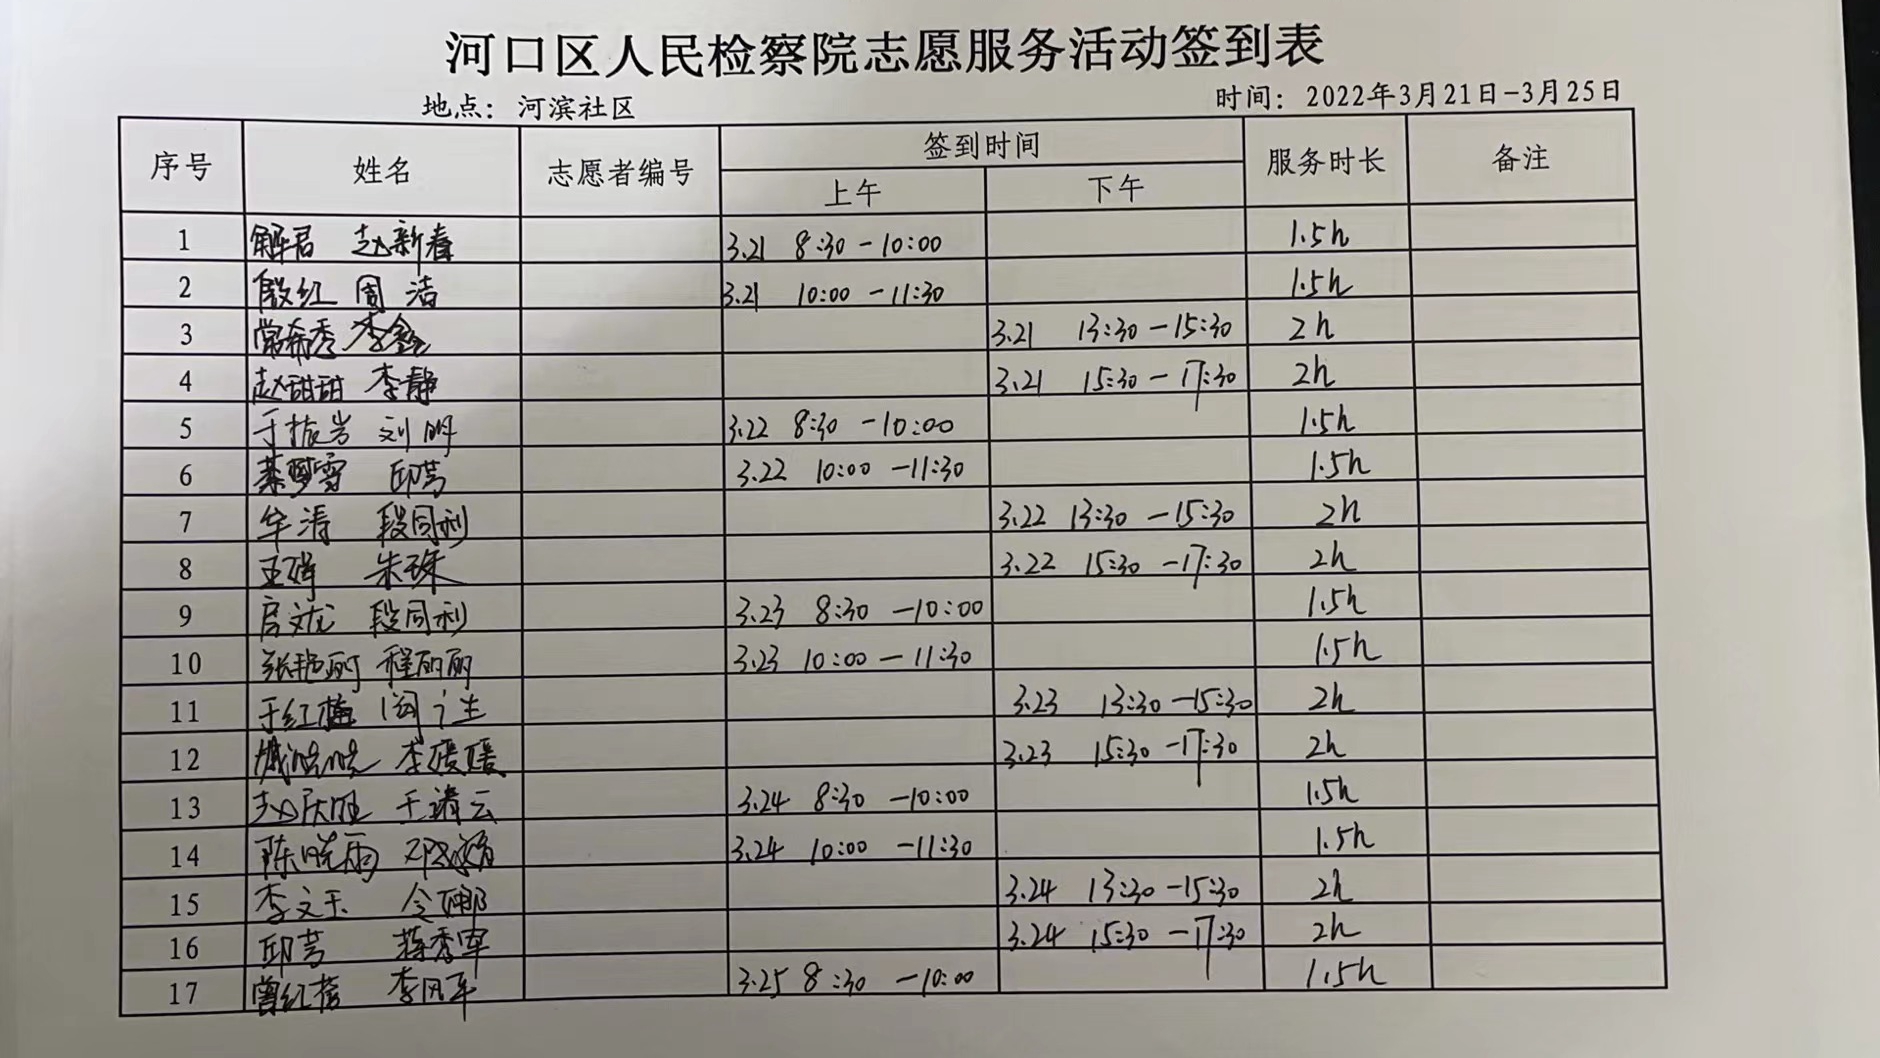 河口区人民检察院志愿服务活动签到表
地点：河滨社区 时间：2022年3月21日-3月25日
序号 姓名 志愿者编号 签到时间 服务时长 备注
上午 下午
1 解君 赵新春 3.21 8:30-10:00 1.5h
2 殷红 周洁 3.21 10:00-11:30 1.5h
3 常希秀 李鑫 3.21 13:30-15:30 2h
4 赵甜甜 李静 3.21 15:30-17:30 2h
5 于振岩 刘明 3.22 8:30-10:00 1.5h
6 邱芳 3.22 10:00-11:30 1.5h
7 牟涛 段同利 3.22 13:30-15:30 2h
8 朱珠 3.22 15:30-17:30 2h
9 段同利 3.23 8:30-10:00 1.5h
10 张艳丽 程丽丽 3.23 10:00-11:30 1.5h
11 于红梅 3.23 13:30-15:30 2h
12 李媛媛 3.23 15:30-17:30 2h
13 王清云 3.24 8:30-10:00 1.5h
14 陈晓雨 3.24 10:00-11:30 1.5h
15 李文玉 3.24 13:30-15:30 2h
16 邱芳 蒋秀军 3.24 15:30-17:30 2h
17 李风平 3.25 8:30-10:00 1.5h